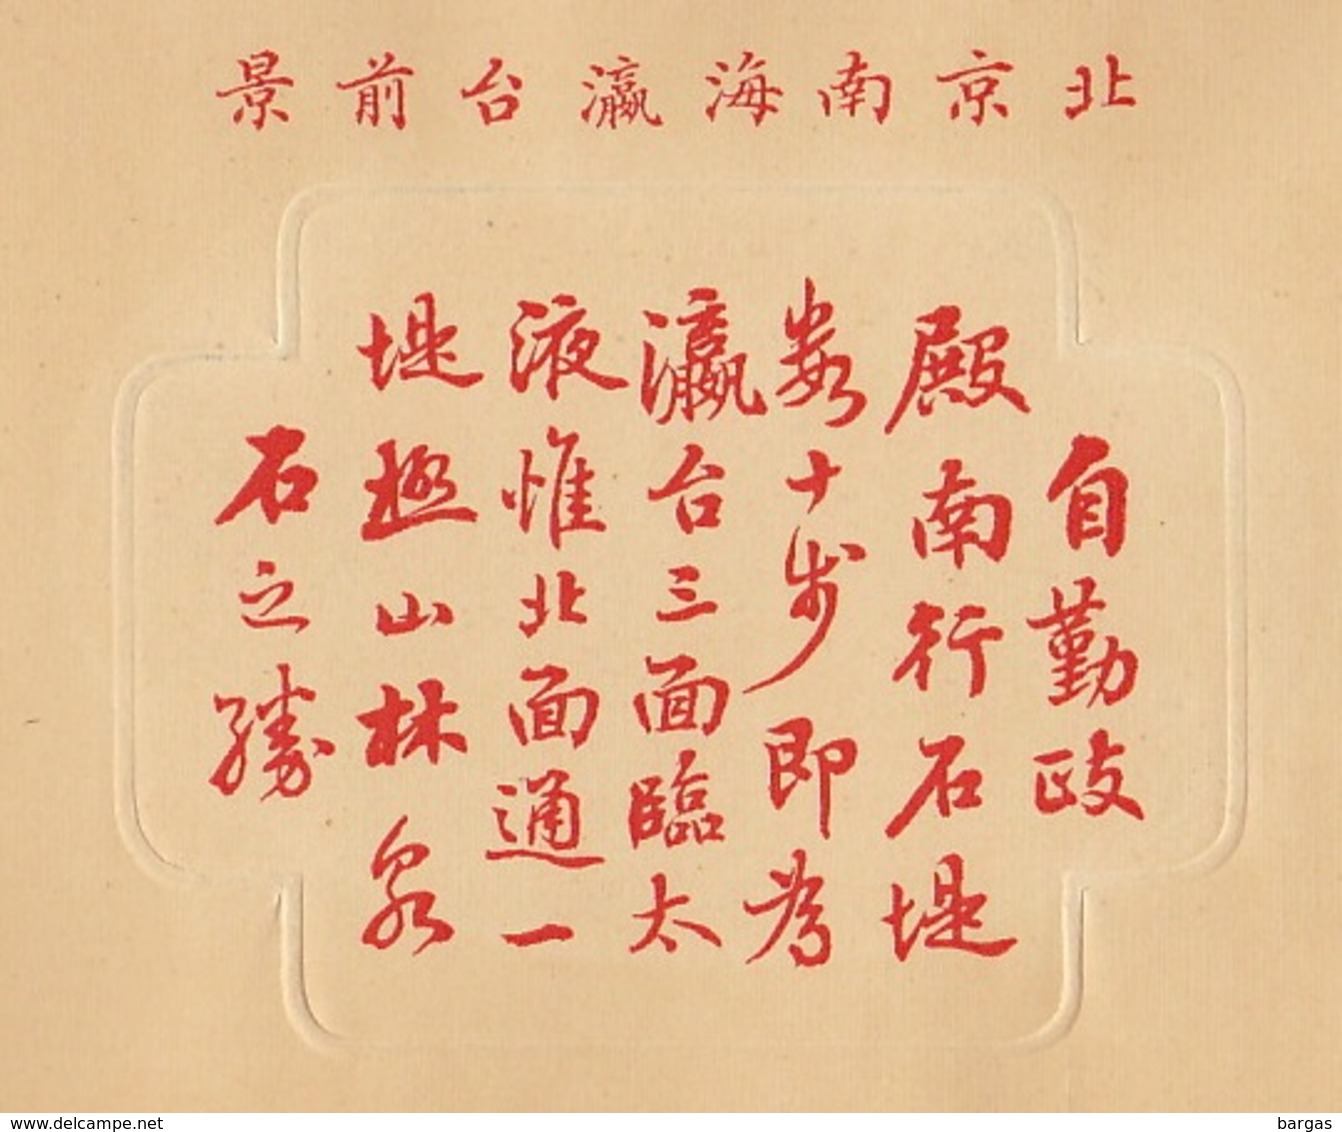 北京南海瀛台前景
自勤政
殿南行石堤
數十步即為
瀛台三面臨太
液惟北面通一
堤極山林泉
石之勝
www.delcampe.net
bargas